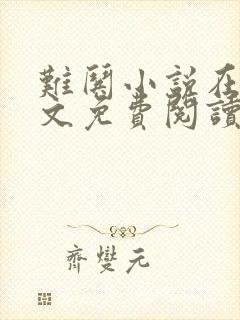 難鬧小說在
文免費閱讀
齊變元